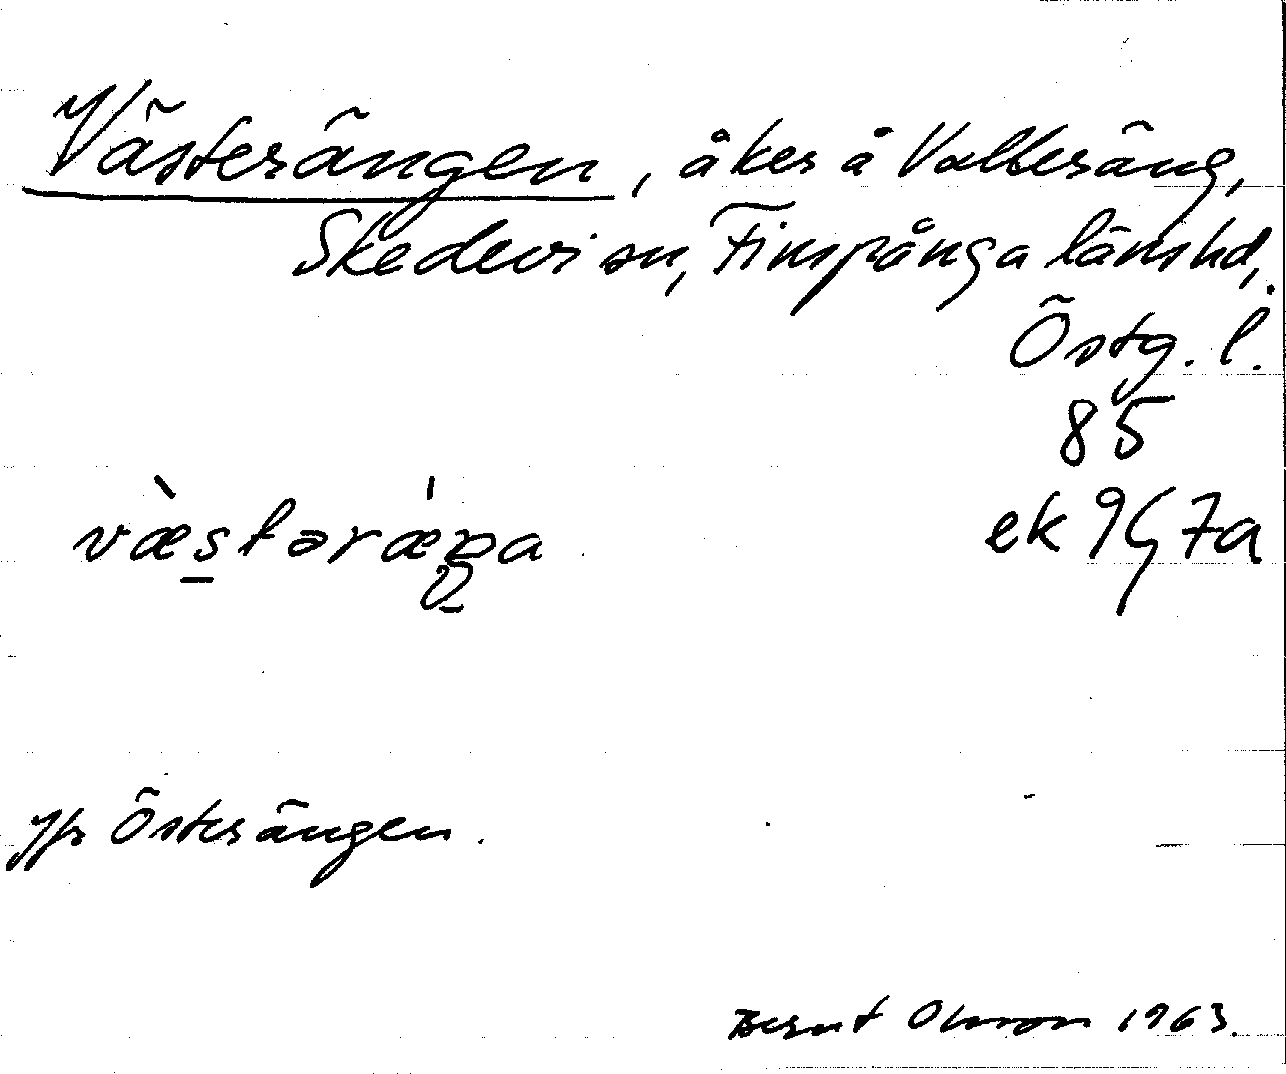 Västerängen, åker å Valleräng,
Skedevi sn, Finspånga länshd,
Östg. l.
85
ek 9G7a
væ̀stərǽŋa
Jfr Österängen.
Bernt Olsson 1963.